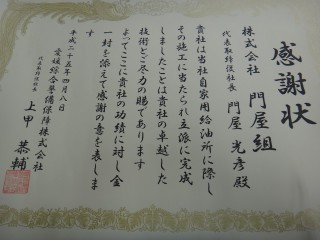 感謝状
株式会社 門屋組
代表取締役社長 門屋光彦殿
貴社は当社自家用給油所に際し
その施工に当たられ立派に完成
しましたことは貴社の卓越した
技術とご尽力の賜であります
よってここに貴社の功績に対し金
一封を添えて感謝の意を表します
平成二十五年四月八日
愛媛綜合警備保障株式会社
代表取締役社長 上甲 恭輔